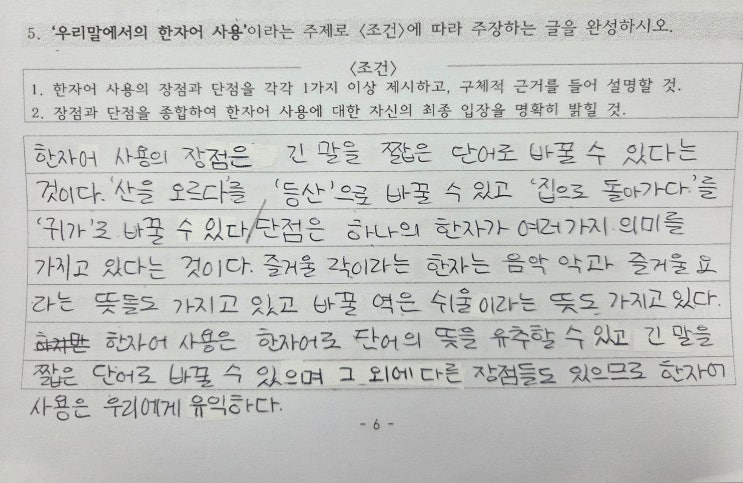 5. '우리말에서의 한자어 사용'이라는 주제로 <조건>에 따라 주장하는 글을 완성하시오.
<조건>
1. 한자어 사용의 장점과 단점을 각각 1가지 이상 제시하고, 구체적 근거를 들어 설명할 것.
2. 장점과 단점을 종합하여 한자어 사용에 대한 자신의 최종 입장을 명확히 밝힐 것.
한자어 사용의 장점은 긴 말을 짧은 단어로 바꿀 수 있다는
것이다. '산을 오르다'를 '등산'으로 바꿀 수 있고 '집으로 돌아가다.'를
'귀가'로 바꿀 수 있다/단점은 하나의 한자가 여러가지 의미를
가지고 있다는 것이다. 즐거울 락이라는 한자는 음악 악과 즐거울 요
라는 뜻들도 가지고 있고 바꿀 역은 쉬울이라는 뜻도 가지고 있다.
하지만 한자어 사용은 한자어로 단어의 뜻을 유추할 수 있고 긴 말을
짧은 단어로 바꿀 수 있으며 그 외에 다른 장점들도 있으므로 한자어
사용은 우리에게 유익하다.
- 6 -